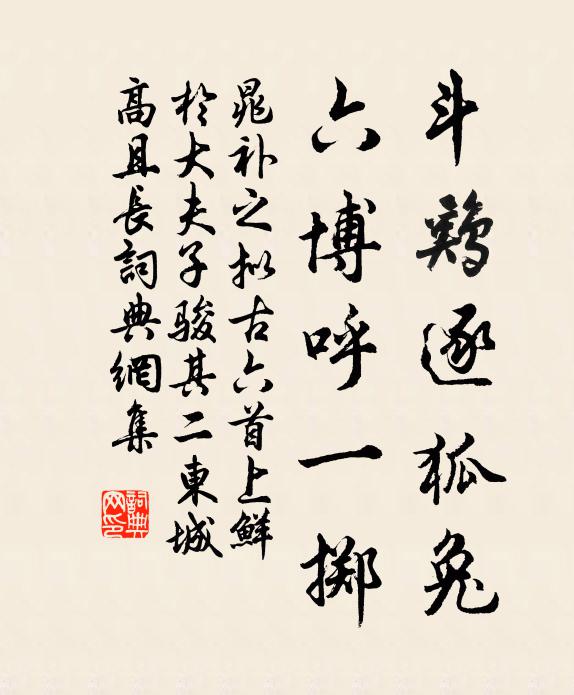 斗鷄逐狐兔
六博呼一擲
晁补之拟古六首上鮮
於大夫子骏其二東城
高且長詞典網集
詞典
网印